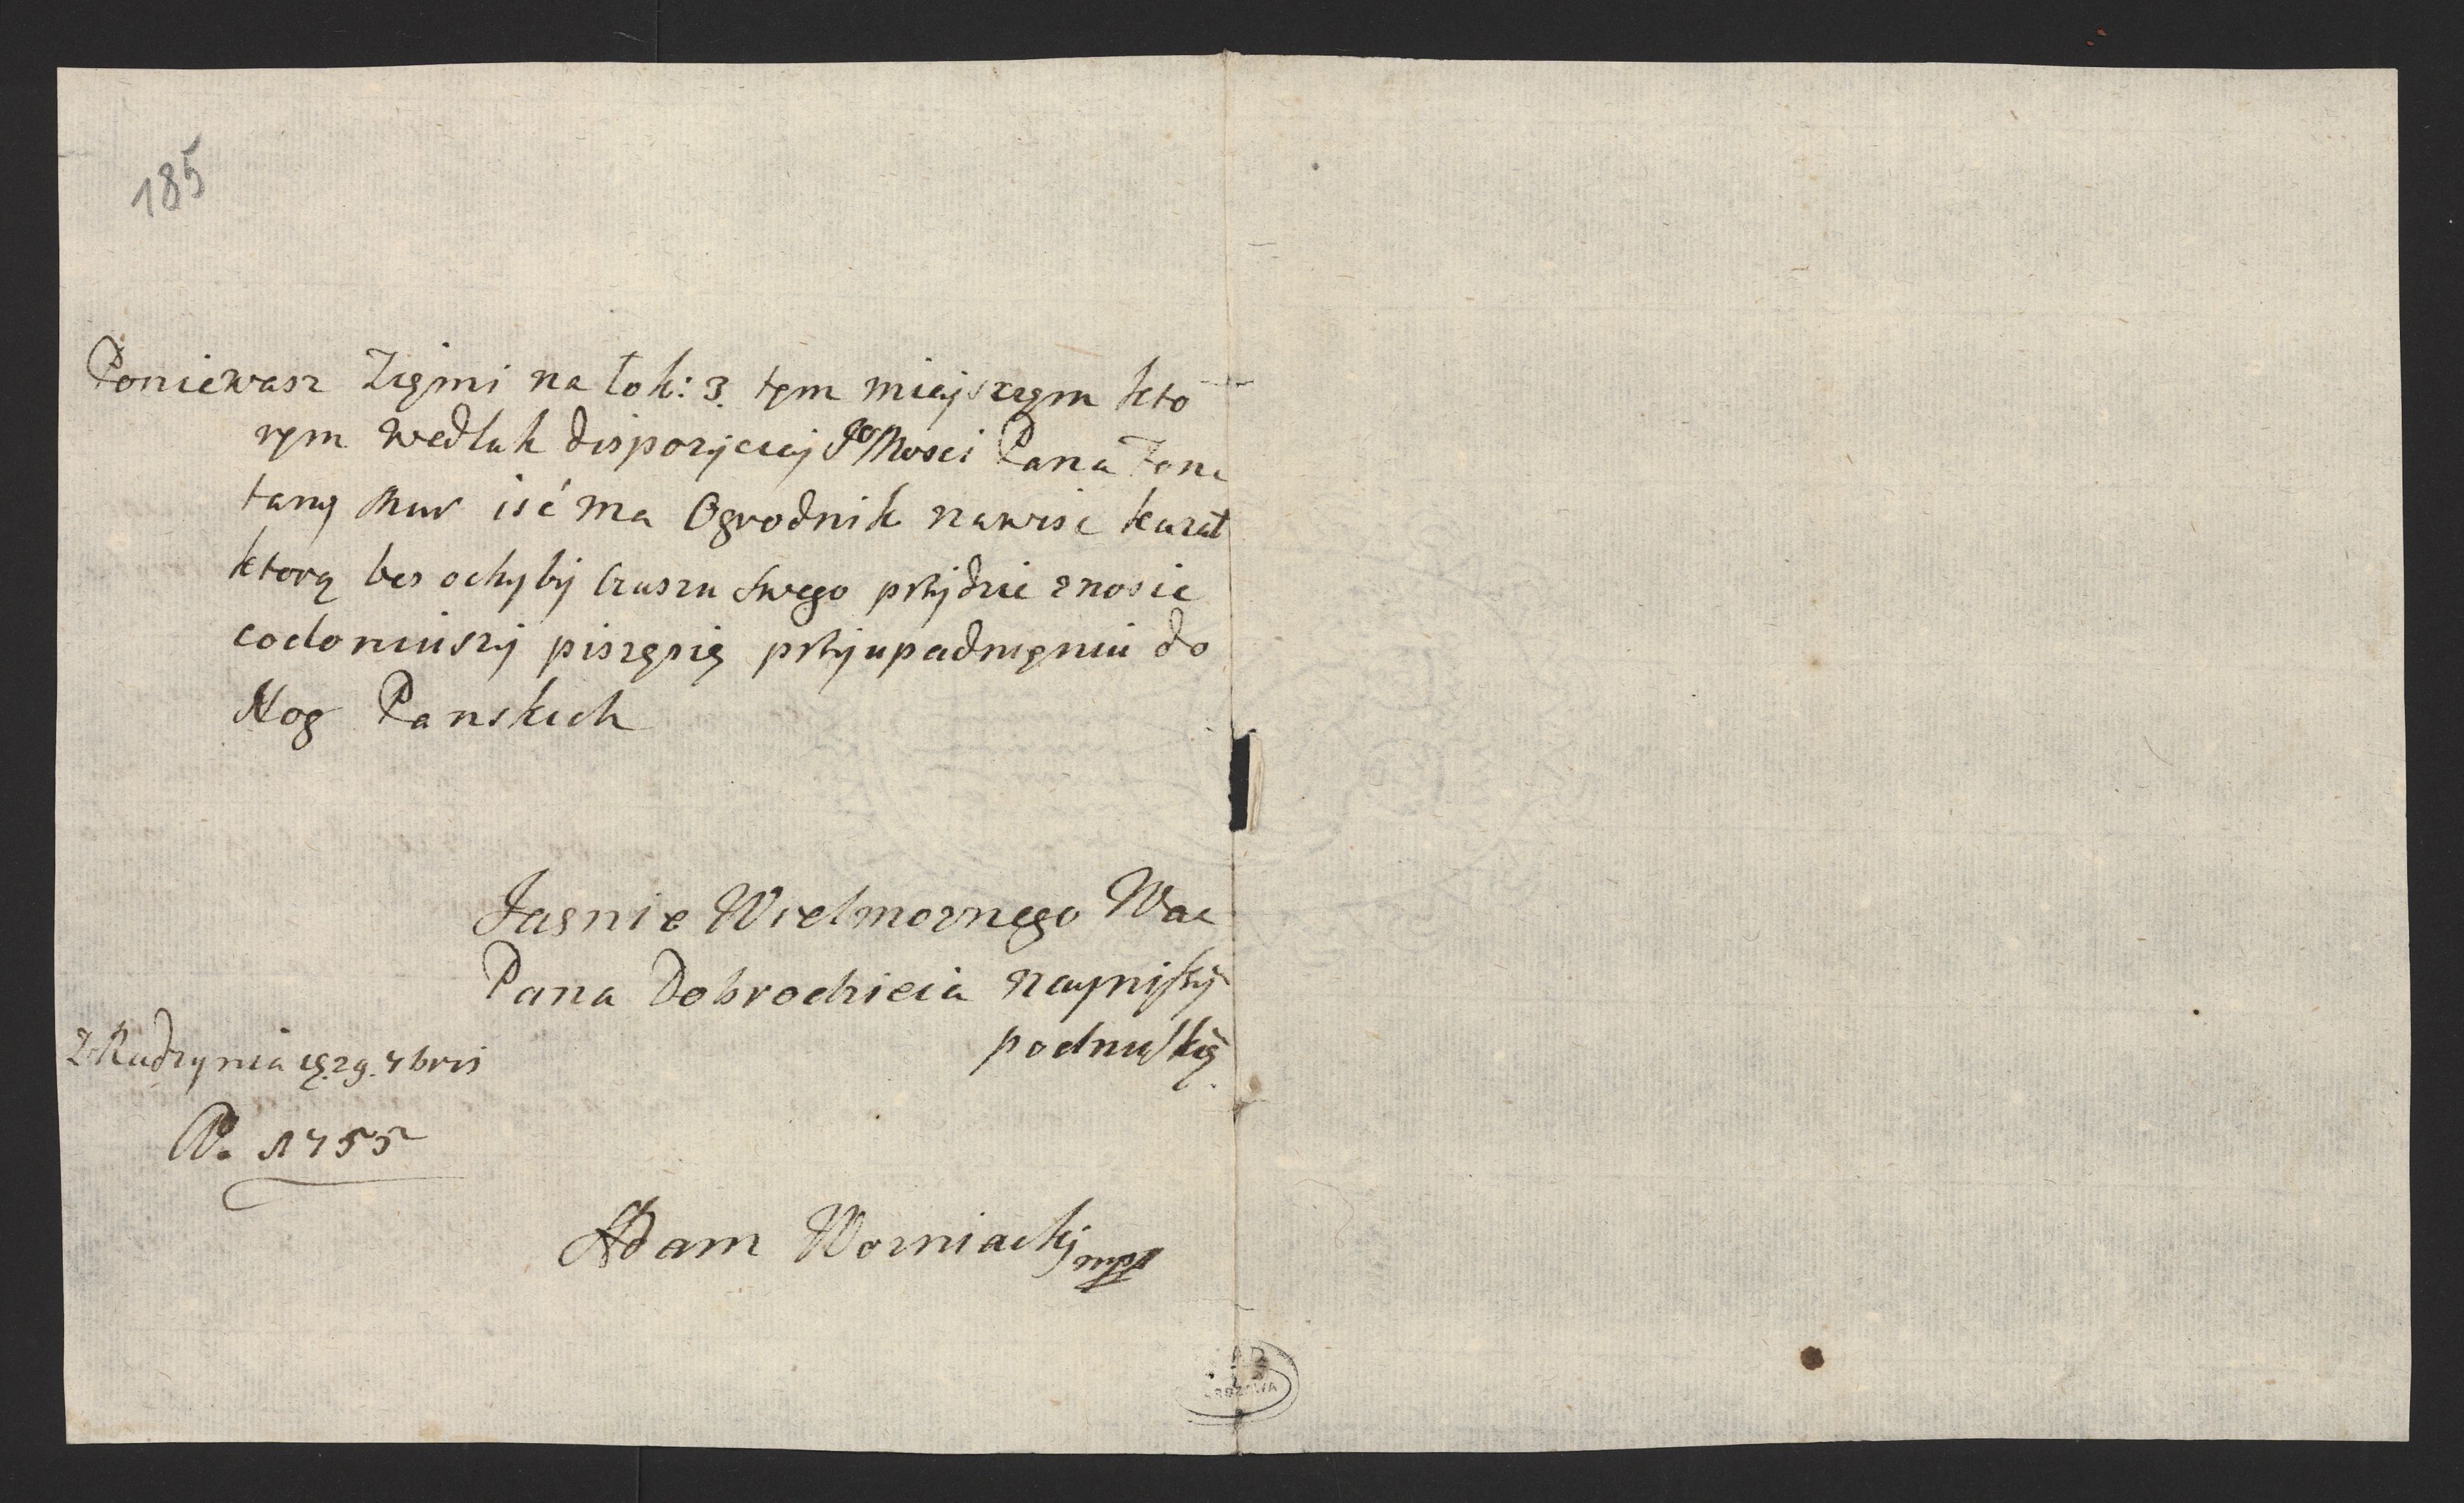 185
Poniewasz Zięmi na łok: 3. tym miejszczym kto
rym wedluk disporyciej JoMosci Pana Fone
tany Mur isć ma Ogrodnik nawisc kazał
ktorą bes ochyby Czaszu swego przijdzie znosic
codoniuszy piszęsię przijupadnięniu do
Nog Panskich
Jasnie Wielmoznego Wac
Pana Dobrodzieia naynisszy
podnuszkiĘ
Z Radzynia 29. 7bris
A. 1755
Adam Worniacky mpp